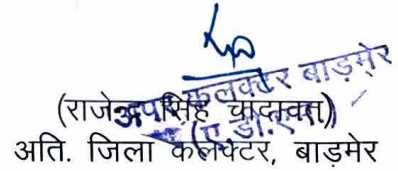 अपर कलक्टर बाड़मेर
(ए.डी.एम.)
(राजेन्द्रसिंह चांदावत)
अति. जिला कलक्टर, बाड़मेर